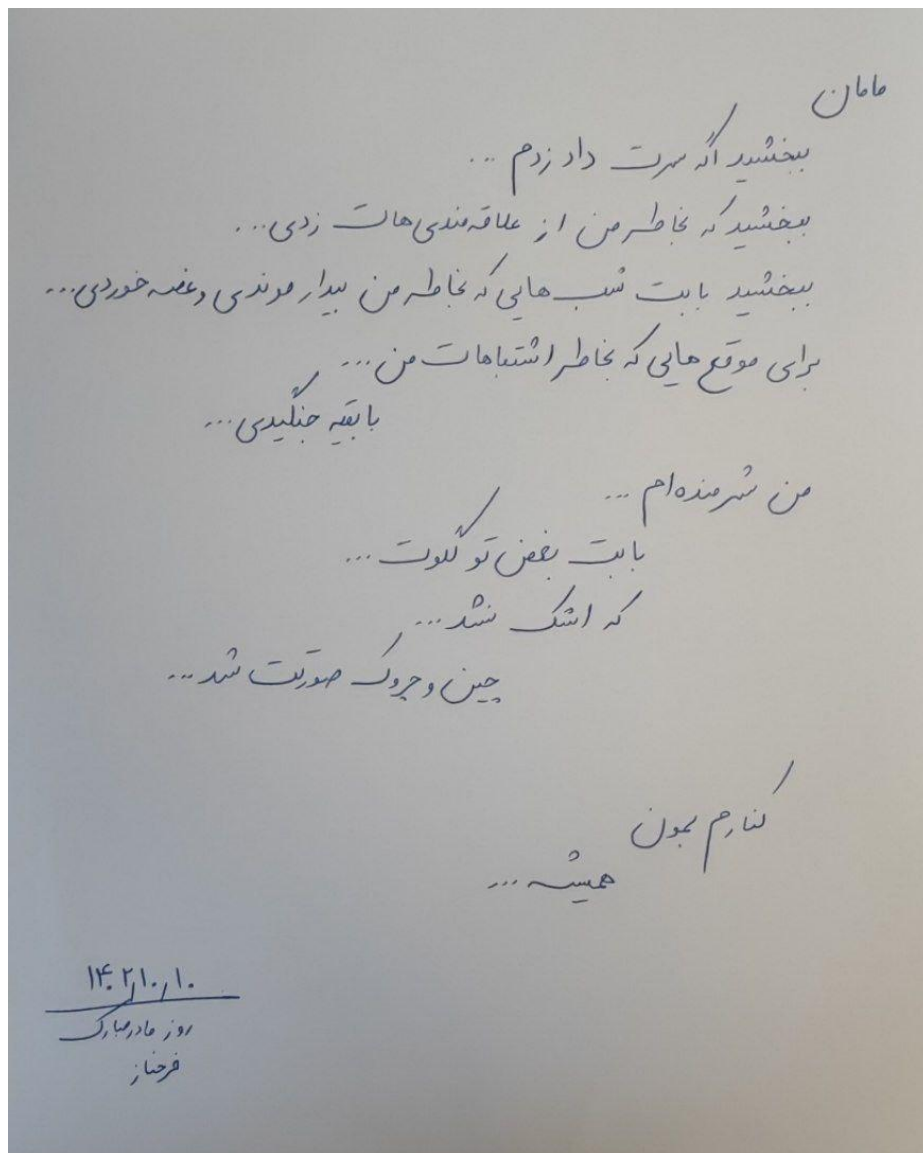 مامان
ببخشید اگه سرت داد زدم ...
ببخشید که بخاطر من از علاقه‌مندی‌هات زدی...
ببخشید بابت شب‌هایی که بخاطر من بیدار موندی و غصه خوردی...
برای موقع‌هایی که بخاطر اشتباهات من...
با بقیه جنگیدی...
من شرمنده‌ام ...
بابت بغض تو گلوت ...
که اشک نشد ...
چین و چروک صورتت شد ...
کنارم بمون
همیشه ...
۱۴۰۲/۱۰/۱۰
روز مادر مبارک
فرحناز